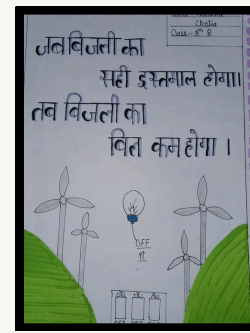 Christia
Class :- 8th B
जब बिजली का
सही इस्तमाल होगा।
तब बिजली का
बिल कम होगा ।
OFF